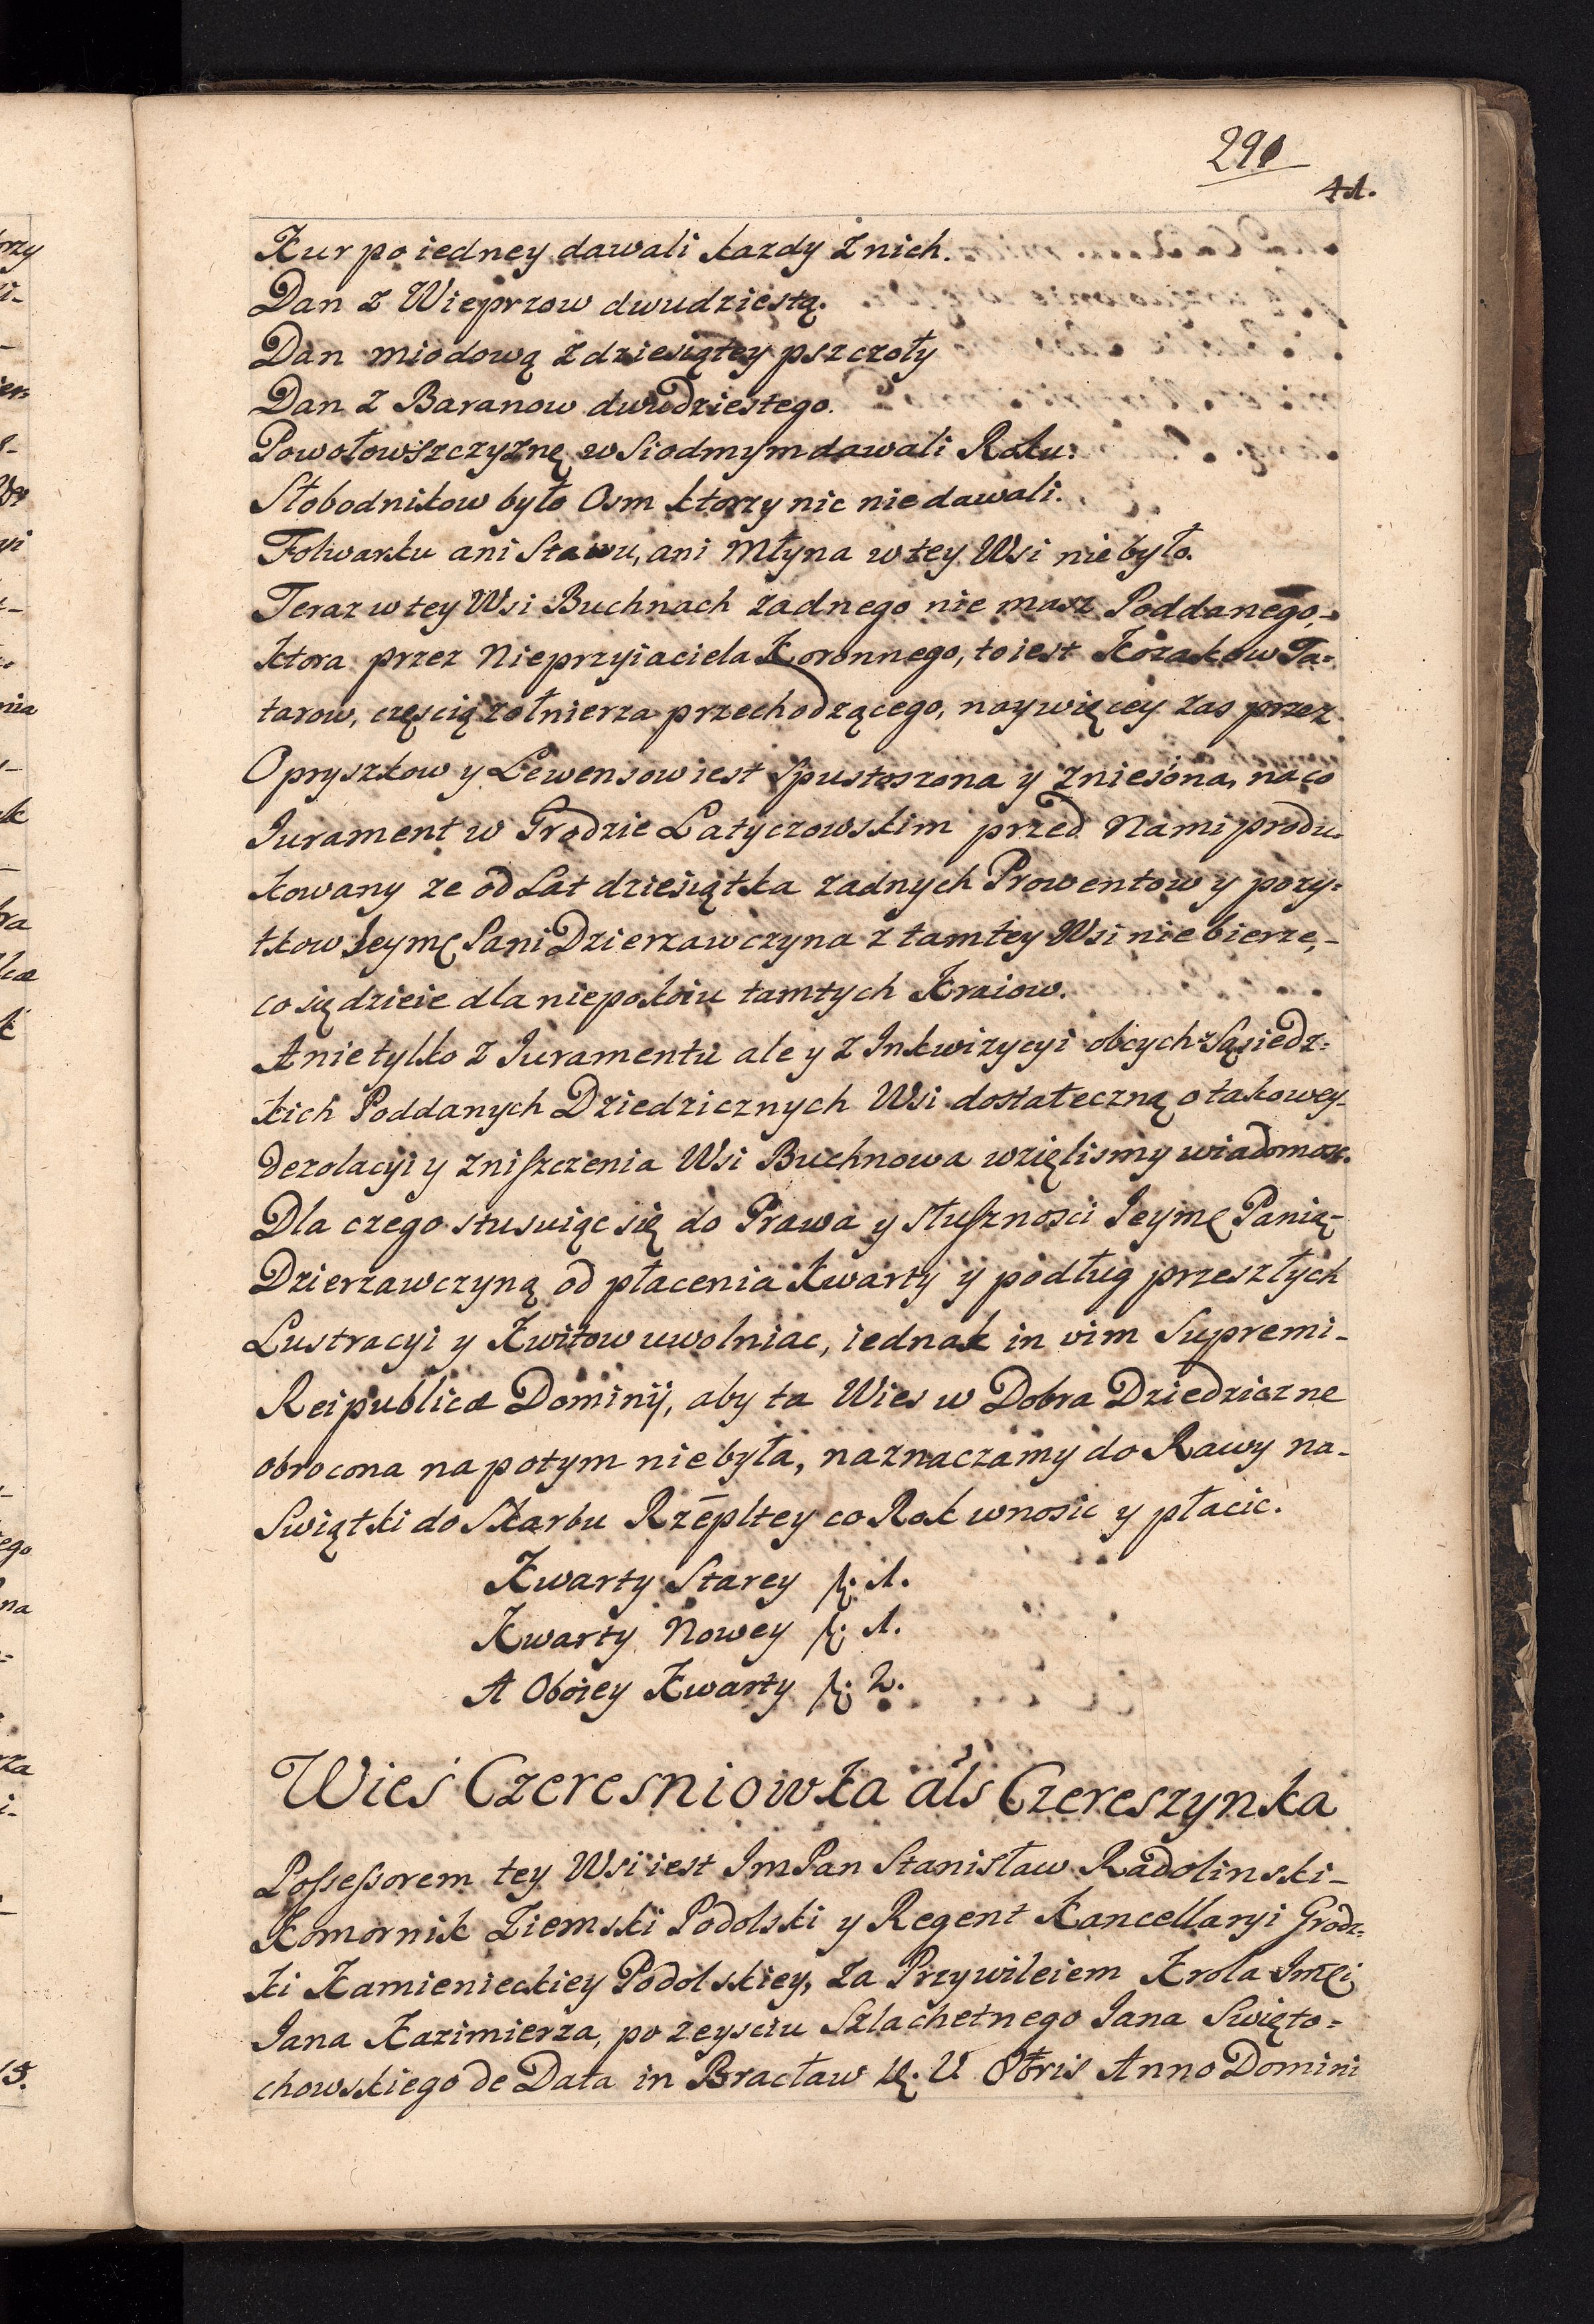 291
41.
Kur po iedney dawali kazdy z nich.
Dan z Wieprzow dwudziestą.
Dan miodową z dziesiątey pszczoły
Dan z Baranow dwudziestego.
Powołowszczyznę w Siodmym dawali Roku:
Słobodnikow było Osm ktorzy nic nie dawali.
Folwarku ani Stawu, ani Młyna w tey Wsi nie było.
Teraz w tey Wsi Buchnach zadnego nie masz Poddanego,
ktora przez Nieprzyiaciela Koronnego, to iest Kozakow Ta=
tarow, częscią zołnierza przechodzącego, naywięcey zas przez
Opryszkow y Lewensow iest spustoszona y zniesiona, na co
Iurament w Grodzie Latyczowskim przed Nami produ=
kowany ze od Lat dziesiątka zadnych Prowentow y pozy=
tkow Ieymę Pani Dzierzawczyna z tamtey Wsi nie bierze,-
co się dzieie dla niepokoiu tamtych Kraiow.
A nie tylko z Iuramentu ale y z Inkwizycyi obcych Sąsiedz=
kich Poddanych Dziedzicznych Wsi dostateczną o takowey
dezolacyi y zniszczenia Wsi Buchnowa wzięlismy wiadomosc.
Dla czego stusuiąc się do Prawa y słuszności Ieymę Panią-
Dzierzawczyną od płacenia Kwarty y podług przeszłych
Lustracyi y Kwitow uwolniac, iednak in vim Supremi-
Reipublicæ Dominij, aby ta Wies w Dobra Dziedziczne
obrocona na potym nie była, naznaczamy do Rawy na-
Swiątki do Skarbu Rzepltey co Rok wnosic y płacic.
Kwarty Starey f. 1.
Kwarty Nowey f. 1.
A Oboiey Kwarty f. 2.
Wieś Czeresniowka als Czereszynka
Possessorem tey Wsi iest ImPan Stanisław Radolinski-
Komornik Ziemski Podolski y Regent Kancellaryi Grodz=
ki Kamienieckiey Podolskiey, za Przywileiem Krola Imci
Iana Kazimierza, po zeysciu Szlachetnego Iana Swięto=
chowskiego de Data in Bracław 8bris Anno Domini